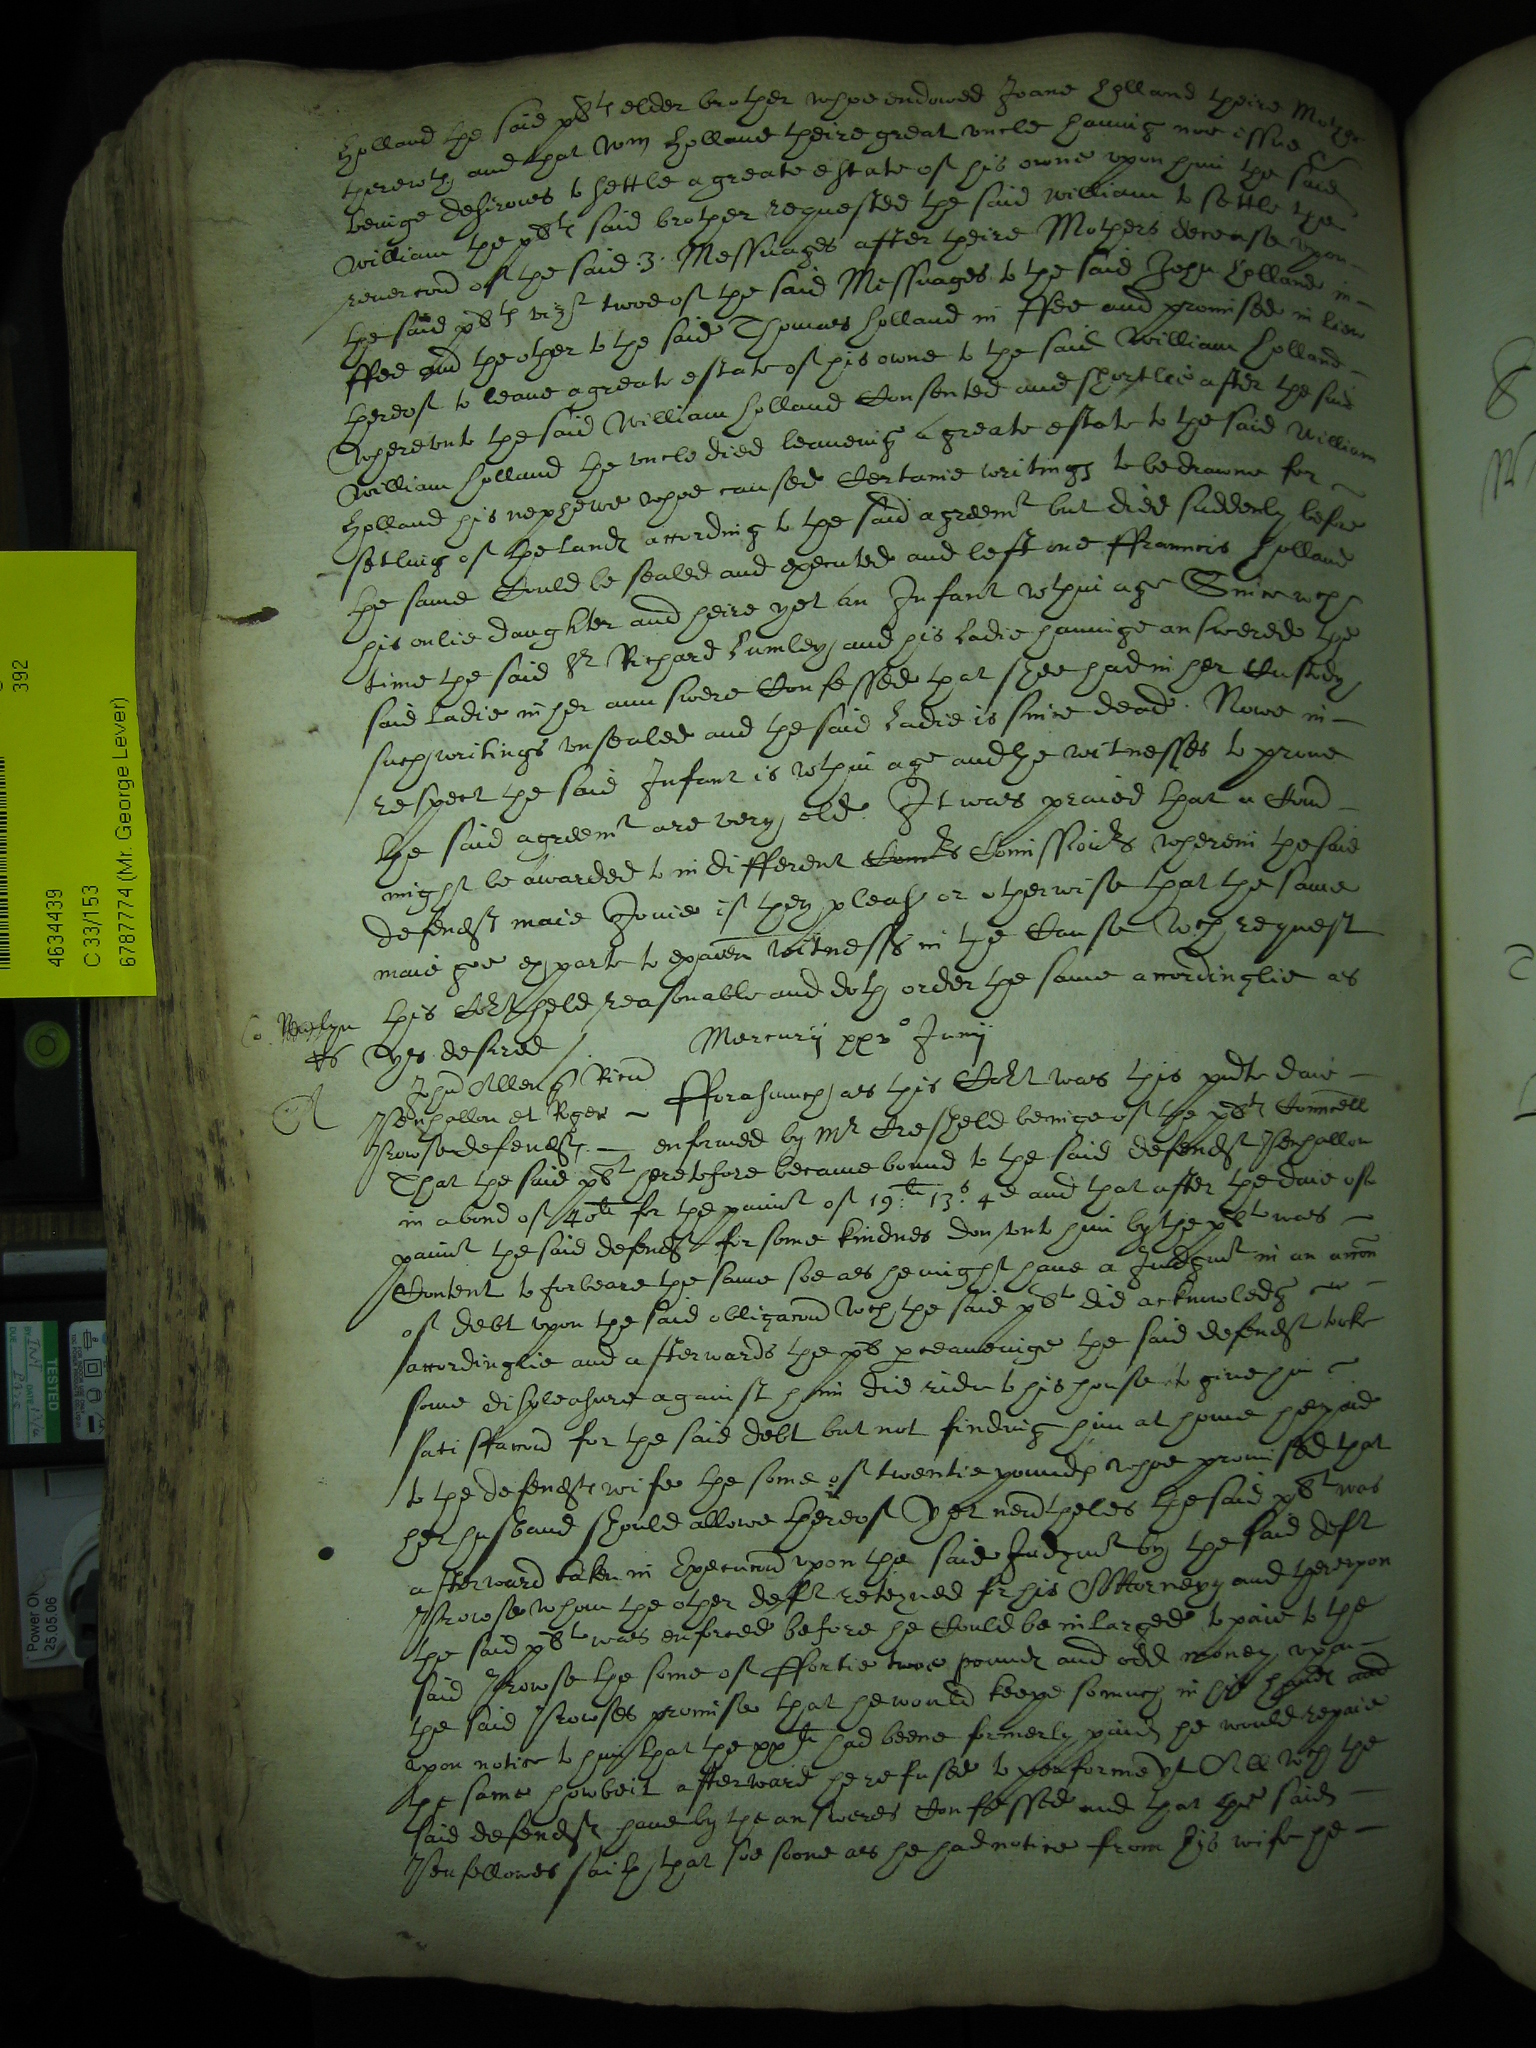 Holland the said plts elder brother whoe endowed Joane Holland theire Mother
therewth and that Wm Holland theire great vncle having noe issue &
beinge desirous to settle a greate estate of his owne vpon him the said
William the plts said brother requested the said William to settle the
revercon of the said .3. Messuages after theire Mothers decease vpon
the said plts vizt twoe of the said Messuages to the said John Holland in
ffee and the other to the said Thomas Holland in ffee and promised in liew
thereof to leave a greate estate of his owne to the said William Holland
Wherevnto the said William Holland Consented and shortlie after the said
William Holland the vncle died leaveinge a greate estate to the said William
Holland his nephewe whoe caused Certaine writings to be drawne for
setling of the lands according to the said agreemt but died suddenly before
the same Could be sealed and executed and left one ffrauncis Holland
his onlie daughter and heire yet an Infant wthin age Since wch
time the said Sr Richard Lumley and his Ladie havinge answered the
said Ladie in her aunswere Confessed that shee had in her Custody
such writings vnsealed and the said Ladie is since dead. Nowe in
respect the said Infant is wthin age and the witnesses to prove
the said agreemt are very old. It was praied that a Comn
might be awarded to indifferent Comrs Comissiors wherein the said
defendts maie Joine if they please or otherwise that the same
maie goe ex parte to examen witnesses in the Cause Wch request
this Cort held reasonable and doth order the same accordinglie as
tys desired
Mercurij xxvo Junij
A
John Allen plt Ricus
Penhallon et Roger
Prowse defendts
fforasmuch as this Cort was this pnte daie
enformed by Mr Cresheld beinge of the plts Councell
That the said plt heretofore became bound to the said defendt Penhallon
in a bond of 40li for the paimt of 19li. 13s. 4d and that after the daie of
paimt the said defendt for some kindnes don vnto him by the plt was
Content to forbeare the same soe as he might have a Judgmt in an accon
of debt vpon the said obligacon Wch the said plt did acknowledg
accordinglie and afterwards the plt perceaveinge the said defendt tooke
some displeasure against him did ride to his house to give him
satisfaccon for the said debt but not finding him at home he paid
to the defendts wife the some of twentie pounds whoe promised that
her husband should allowe thereof Yet nevertheles the said plt was
afterward taken in Execucon vpon the said Judgmt by the said deft
Prowse whom the other deft reteyned for his Attorney and therevpon
the said plt was enforced before he Could be inlarged to paie to the
said Prowse the some of ffortie twoe pounds and odd money vpon
the said Prowses promise that he would keepe somuch in his hands and
vpon notice to him that the xxli had beene formerly paid he would repaie
the same howbeit afterward he refused to performe yt All wch the
said defendts have by the answeres Confessed and that the said
Penfellowes saith that soe soone as he had notice from his wife he
392
4634439
C 33/153
6787774 (Mr. George Lever)
TESTED
Power On
25.05.06